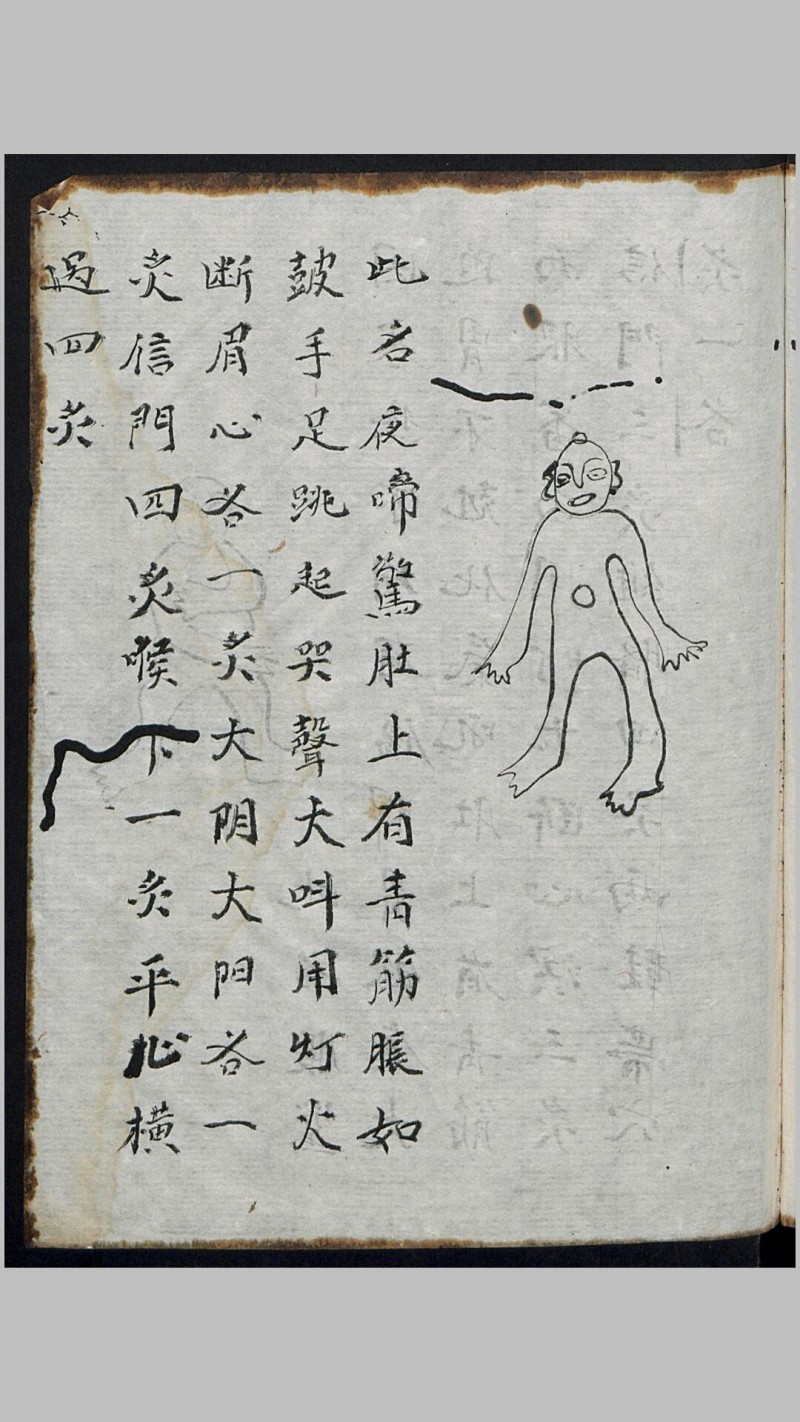 此名夜啼驚肚上有青筋脹如
皷手足跳起哭聲大呌用灯火
断眉心各一炙大阴大阳各一
炙信門四炙喉下一炙平心横
過四炙